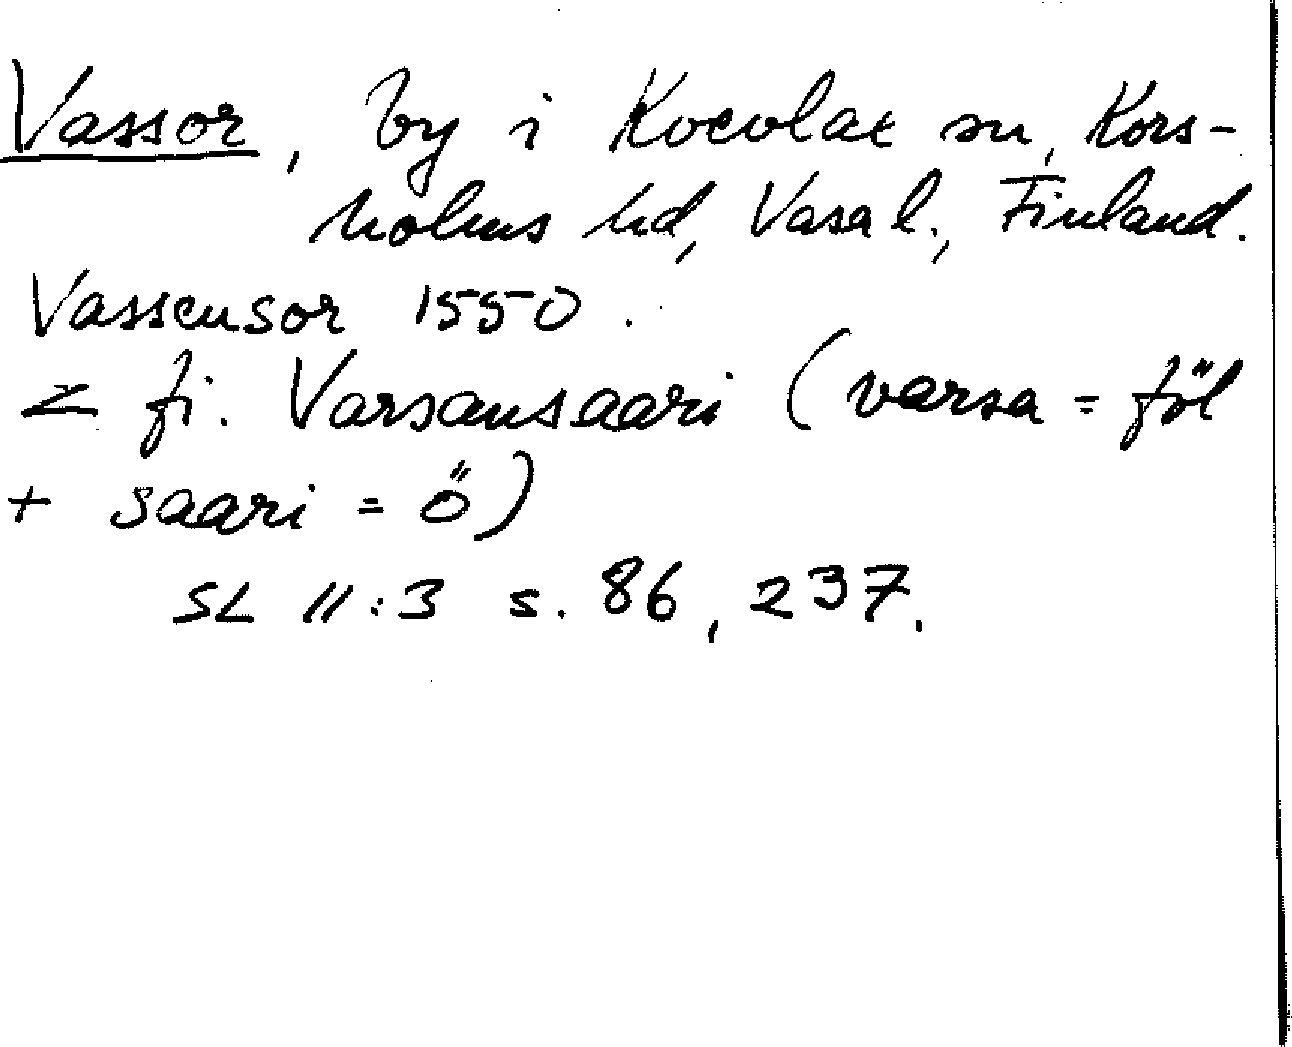 Vassor, by i Kvevlax sn, Kors-
holms hd, Vasa l., Finland.
Vassensor 1550.
< fi. Varsansaari (varsa = föl
+ saari = ö)
SL II:3 s. 86, 237.